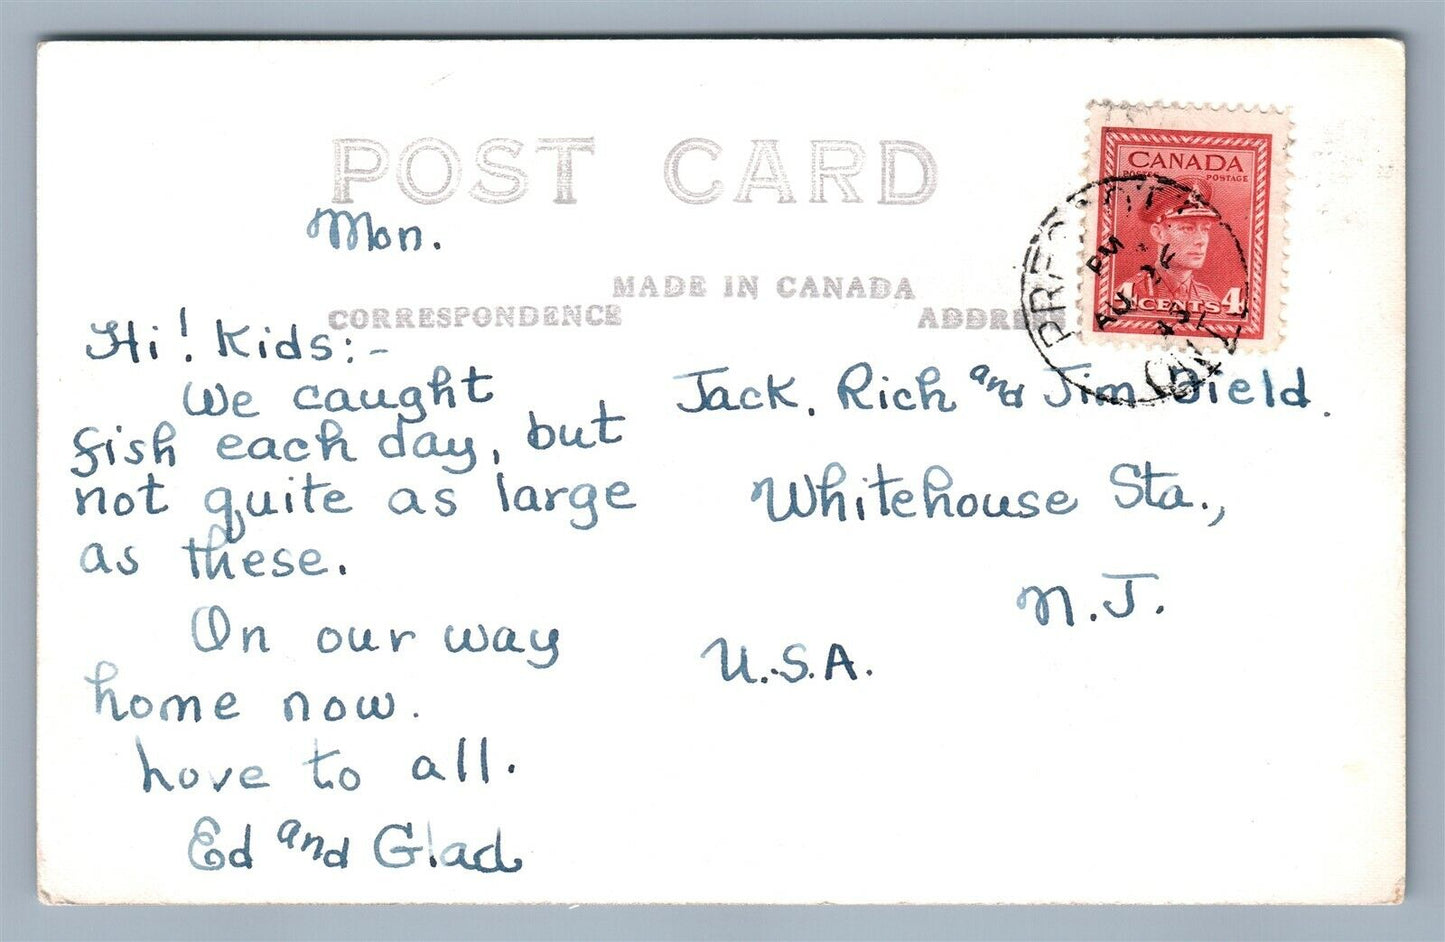 POST CARD
Mon.
MADE IN CANADA
CORRESPONDENCE
ADDRE
CANADA
POSTES POSTAGE
4 CENTS 4
PM
AU 26
ONT
Hi! Kids:-
We caught
fish each day, but
not quite as large
as these.
On our way
home now.
Love to all.
Ed and Glad
Jack, Rich and Jim Dield.
Whitehouse Sta.,
N.J.
U.S.A.